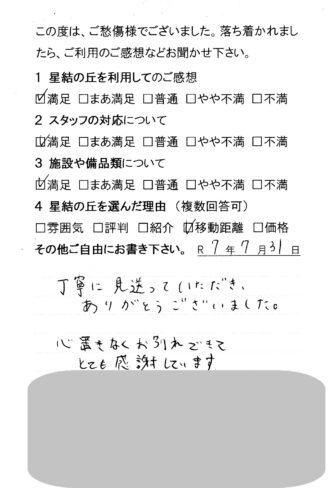 この度は、ご愁傷様でございました。落ち着かれまし
たら、ご利用のご感想などお聞かせ下さい。
1 星結の丘を利用してのご感想
☑満足 □まあ満足 □普通 □やや不満 □不満
2 スタッフの対応について
☑満足 □まあ満足 □普通 □やや不満 □不満
3 施設や備品類について
☑満足 □まあ満足 □普通 □やや不満 □不満
4 星結の丘を選んだ理由（複数回答可）
□雰囲気 □評判 □紹介 ☑移動距離 □価格
その他ご自由にお書き下さい。 R 7 年 7 月 31 日
丁寧に見送っていただき、
ありがとうございました。
心置きなくお別れできて
とても感謝しています